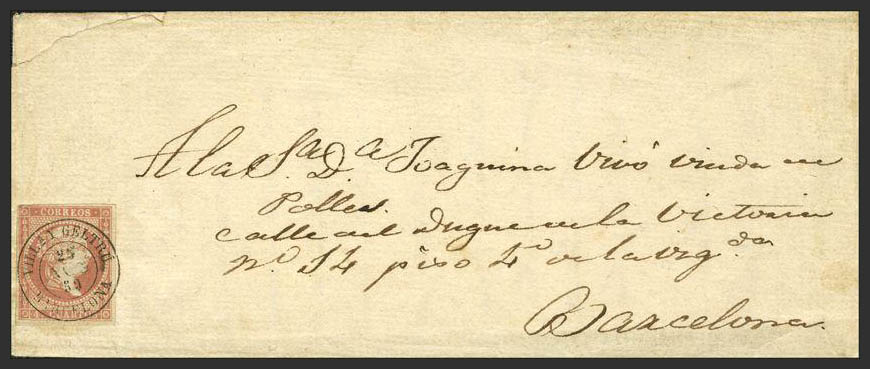 A la S.ra D.a Joaquina Vivó viuda de
Polles.
calle del Duque de la Victoria
No. 14 piso 4o de la izq.da
Barcelona.
CORREOS
GELTRÚ
25
59
BARCELONA